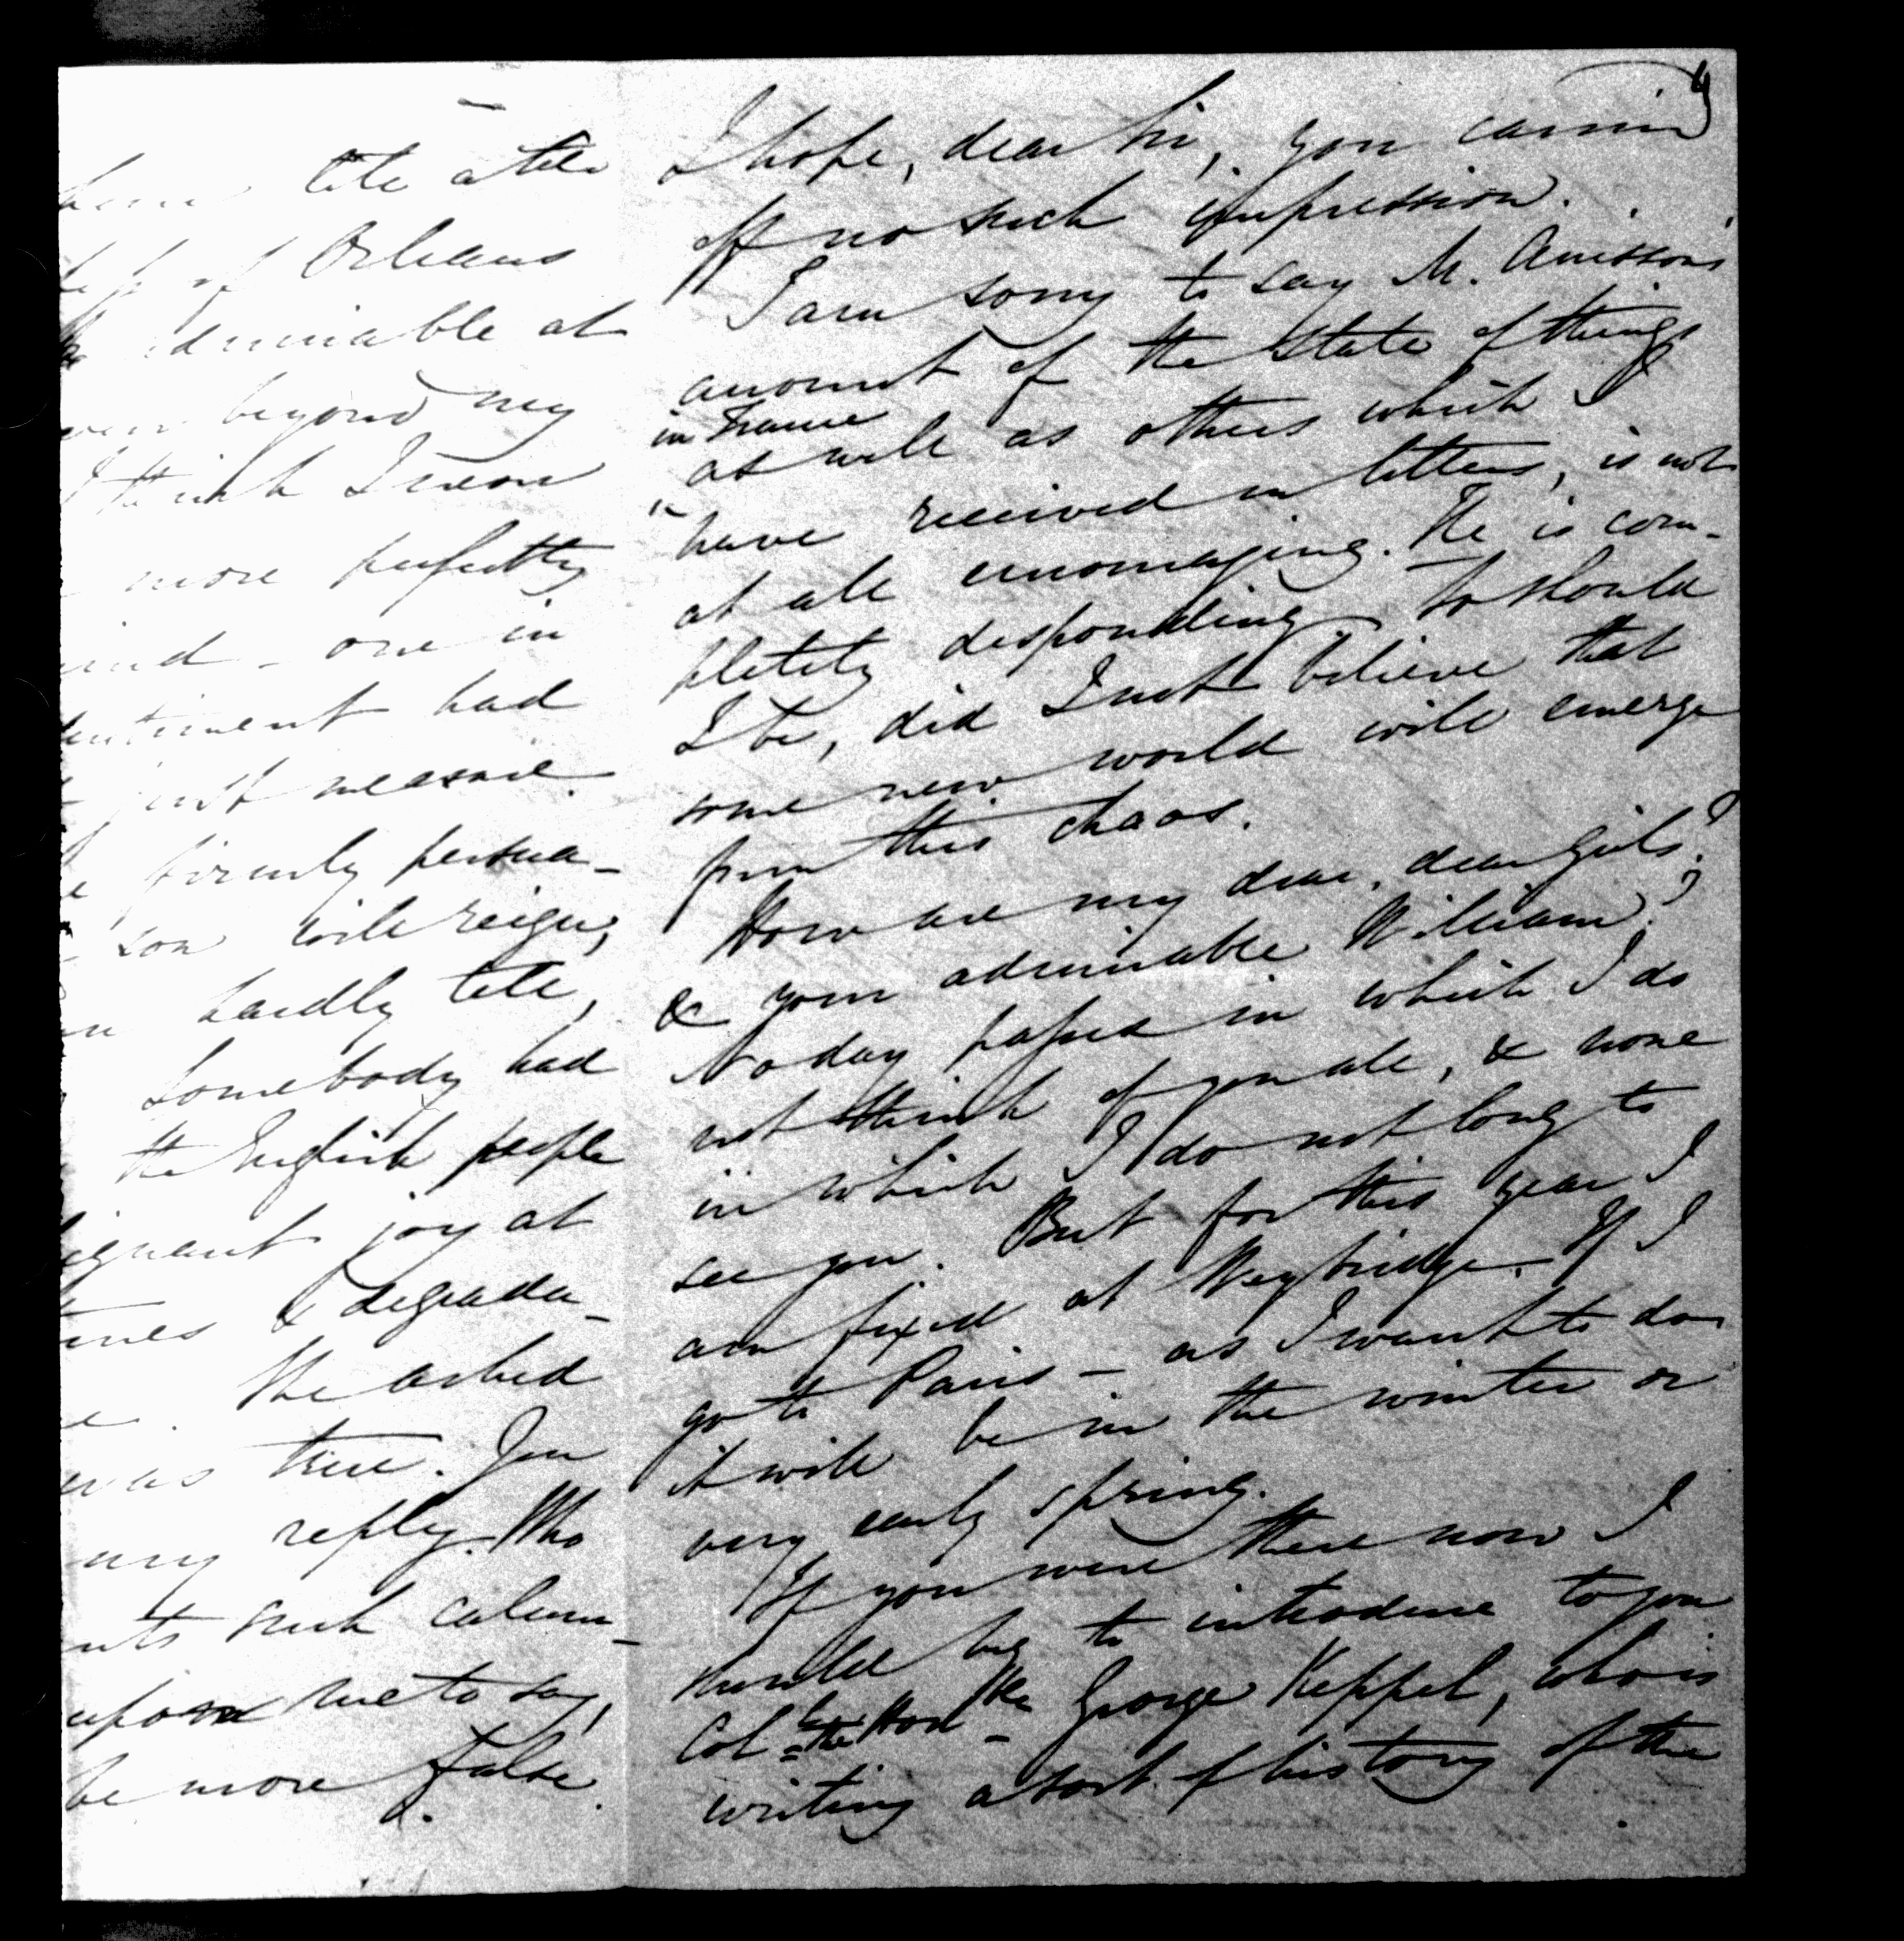 tête a tête
of Orleans
admirable at
beyond my
think I ever
more perfectly
- one in
sentiment had
just measure.
firmly persua-
son will reign,
hardly tell,
Somebody had
the English people
joy at
& degrada-
She asked
was true. You
my reply. Who
such calum-
upon me to say,
be more false.
I hope, dear Sir, you carried
off no such impression.
I am sorry to say M. Anisson's
account of the state of things
in France
as well as others which I
have received in letters, is not
at all encouraging. He is com-
pletely desponding. So should
I be, did I not believe that
some new world will emerge
from this chaos.
How are my dear, dear girls?
& your admirable William?
No day passes in which I do
not think of you all, & none
in which I do not long to
see you. But for this year I
am fixed at Weybridge. If I
go to Paris - as I want to do
it will be in the winter or
very early spring.
If you were there now I
should beg to introduce to you
Col the Hon George Keppel, who is
writing a sort of history of the